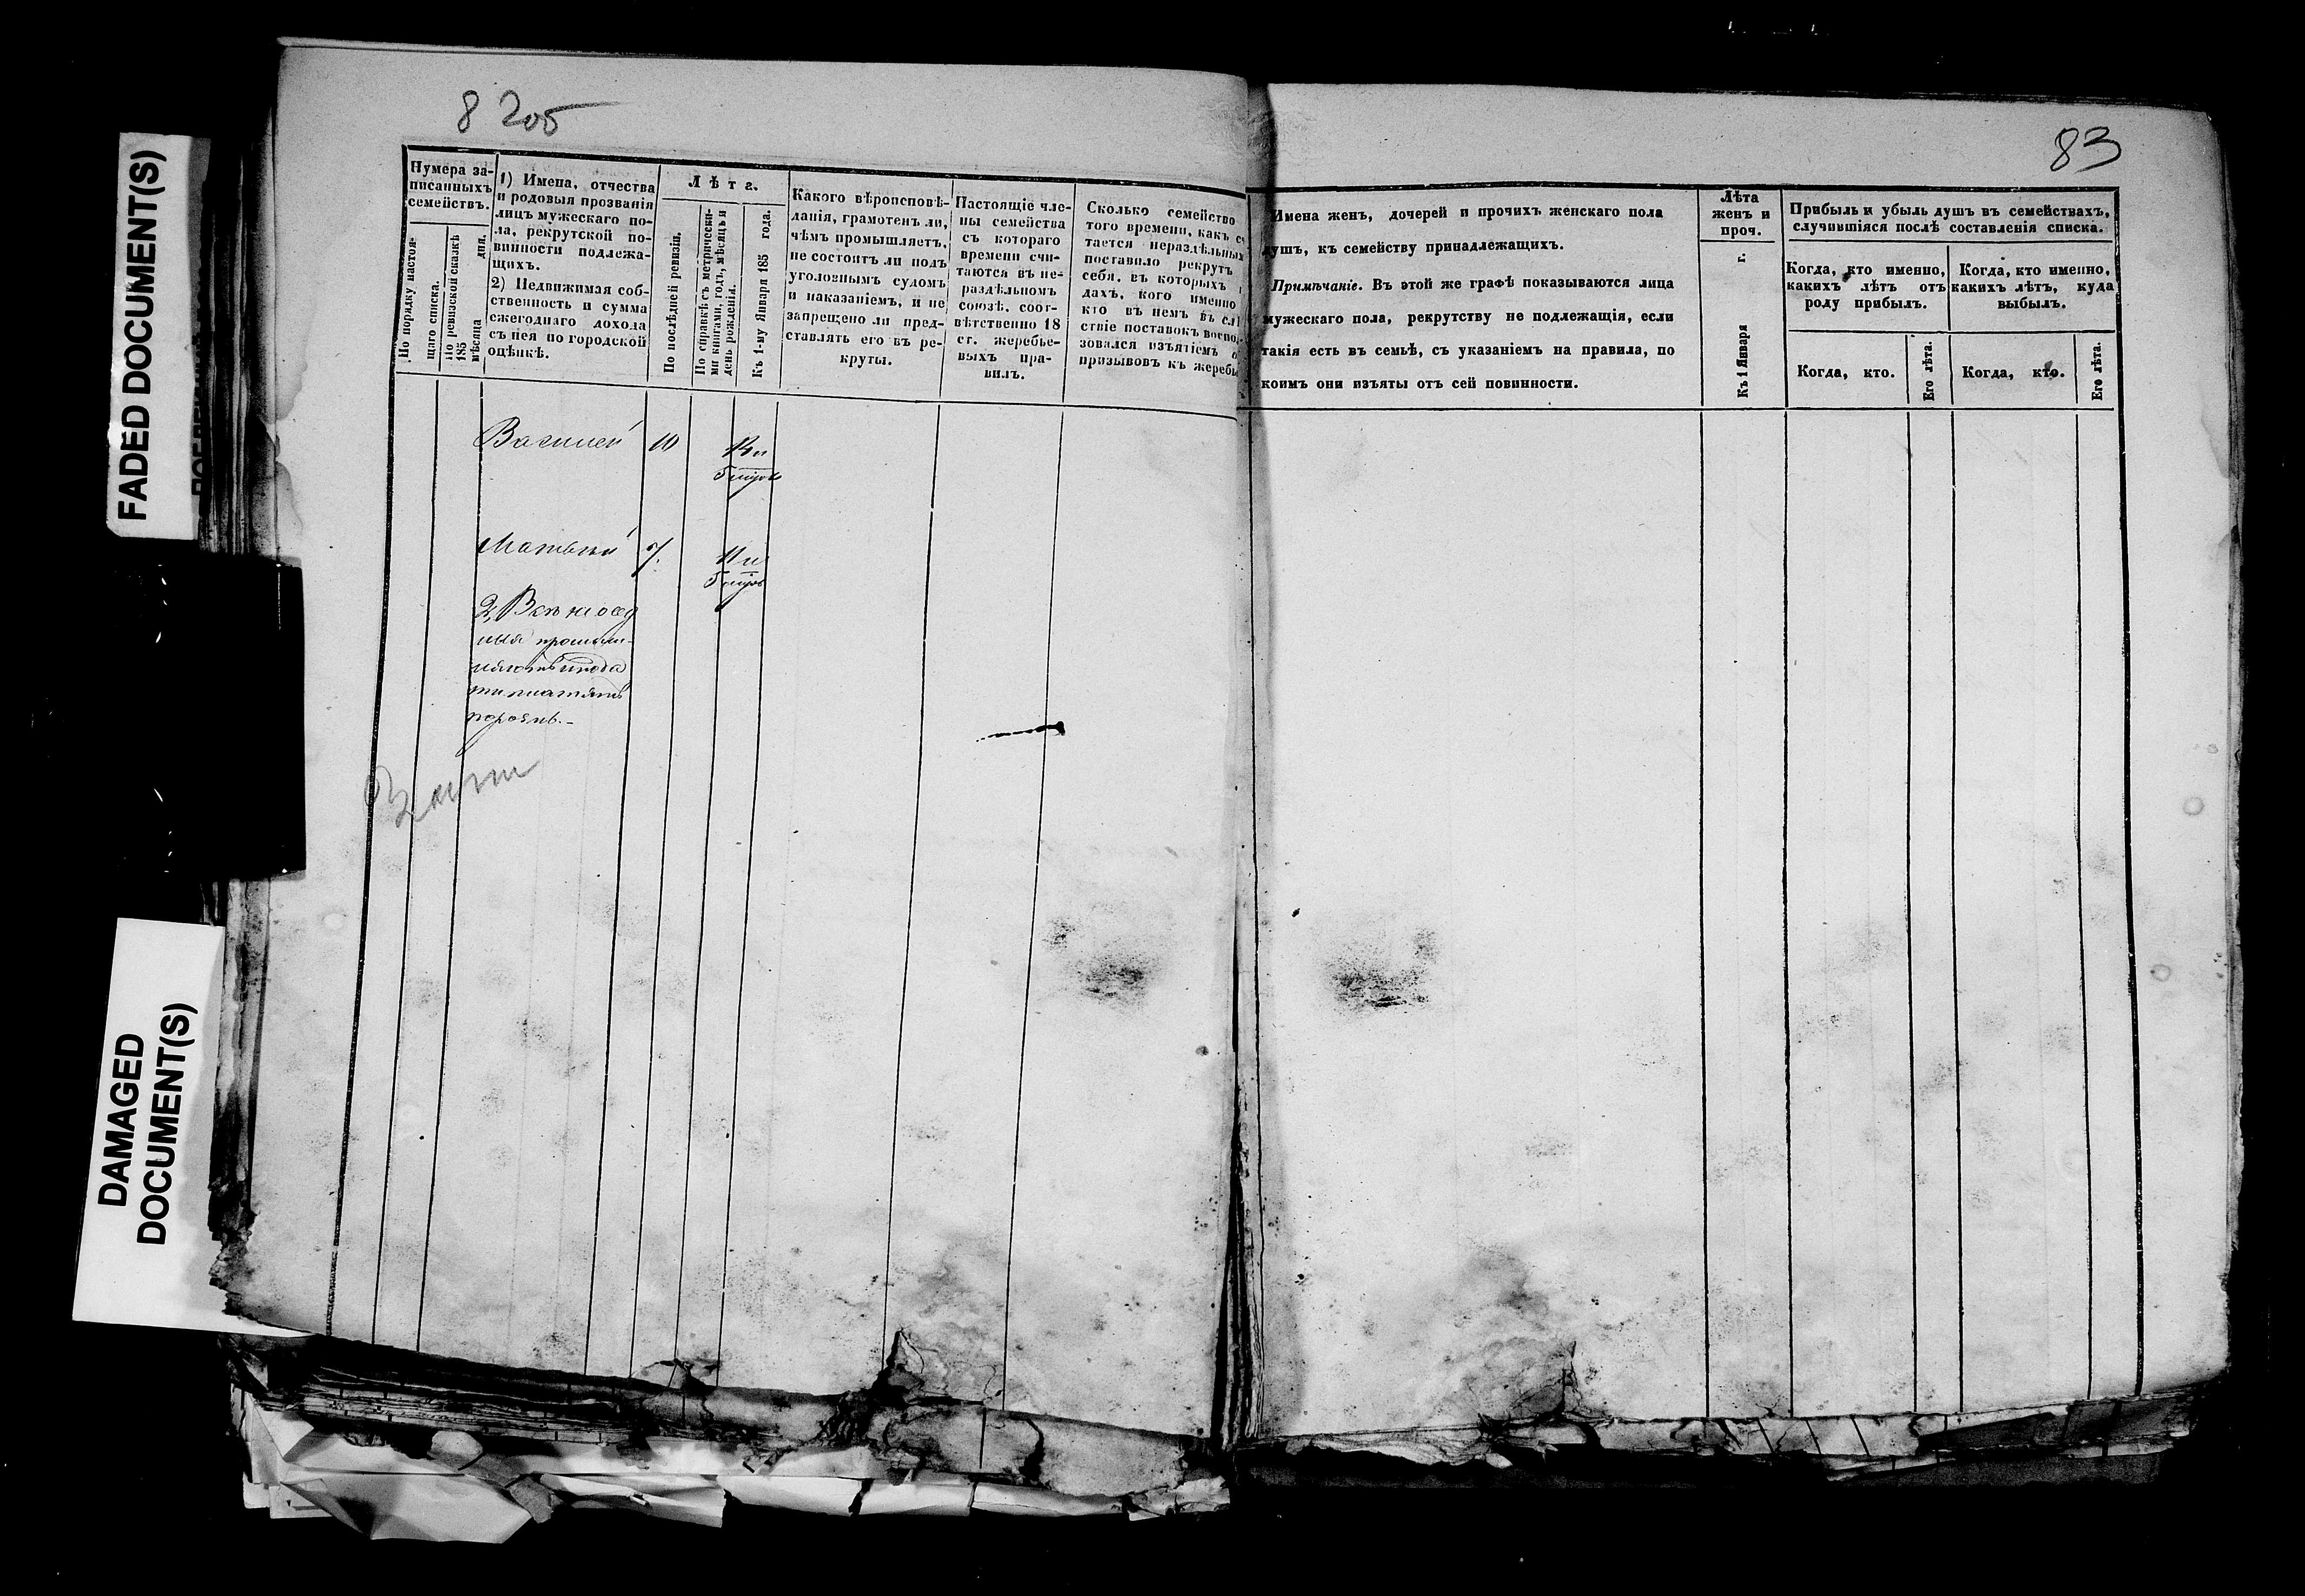 FADED DOCUMENT(S)
DAMAGED
DOCUMENT(S)
8 205
83
Нумера за-
писанныхъ
семействъ.
По порядку настоя-
щаго списка.
По ревизской сказкѣ
185 дня.
мѣсяца
1) Имена, отчества
и родовыя прозванія
лицъ мужескаго по-
ла, рекрутской по-
винности подлежа-
щихъ.
2) Недвижимая соб-
ственность и сумма
ежегоднаго дохода
съ нея по городской
оцѣнкѣ.
Лѣта.
По послѣдней ревизіи.
По справкѣ съ метрически-
ми книгами, годъ, мѣсяцъ и
день рожденія.
Къ 1-му Января 185 года.
Какого вѣроисповѣ-
данія, грамотенъ ли,
чѣмъ промышляетъ,
не состоитъ ли подъ
уголовнымъ судомъ
и наказаніемъ, и не
запрещено ли пред-
ставлять его въ ре-
круты.
Настоящіе чле-
ны семейства
съ котораго
времени счи-
таются въ не-
раздѣльномъ
союзѣ, соот-
вѣтственно 18
ст. жеребье-
выхъ пра-
вилъ.
Сколько семейство
того времени, какъ с
тается нераздѣльнымъ
поставило рекрутъ
себя, въ которыхъ
дахъ, кого именно
кто въ немъ въ слѣ
ствіе поставокъ воспо
зовался изъятіемъ о
призывовъ къ жеребь
Имена женъ, дочерей и прочихъ женскаго пола
душъ, къ семейству принадлежащихъ.
Примѣчаніе. Въ этой же графѣ показываются лица
мужескаго пола, рекрутству не подлежащія, если
такія есть въ семьѣ, съ указаніемъ на правила, по
коимъ они изъяты отъ сей повинности.
Лѣта
женъ и
проч.
Къ 1 Января г.
Прибыль и убыль душъ въ семействахъ,
случившіяся послѣ составленія списка.
Когда, кто именно,
какихъ лѣтъ отъ
роду прибылъ.
Когда, кто именно,
какихъ лѣтъ, куда
выбылъ.
Когда, кто.
Его лѣта.
Когда, кто.
Его лѣта.
Василей 10
Матвей 7.
11 и